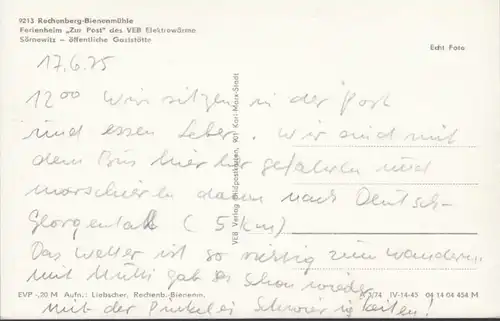 9213 Rechenberg-Bienenmühle
Ferienheim „Zur Post" des VEB Elektrowärme
Sörnewitz – öffentliche Gaststätte
Echt Foto
17.6.75
12⁰⁰ Wir sitzen in der Post
und essen Leber. Wir sind mit
dem Bus hier her gefahren und
marschieren dann nach Deutsch-
Georgental (5 km)
Das Wetter ist so richtig zum wandern.
mit Mutti gab es schon wieder
mit der Pinkelei Schwierigkeiten!
VEB Verlag Bildpostkarten, 901 Karl-Marx-Stadt
EVP -,20 M Aufn.: Liebscher, Rechenb.-Bienenm.
3/74 IV-14-45 01 14 04 454 M